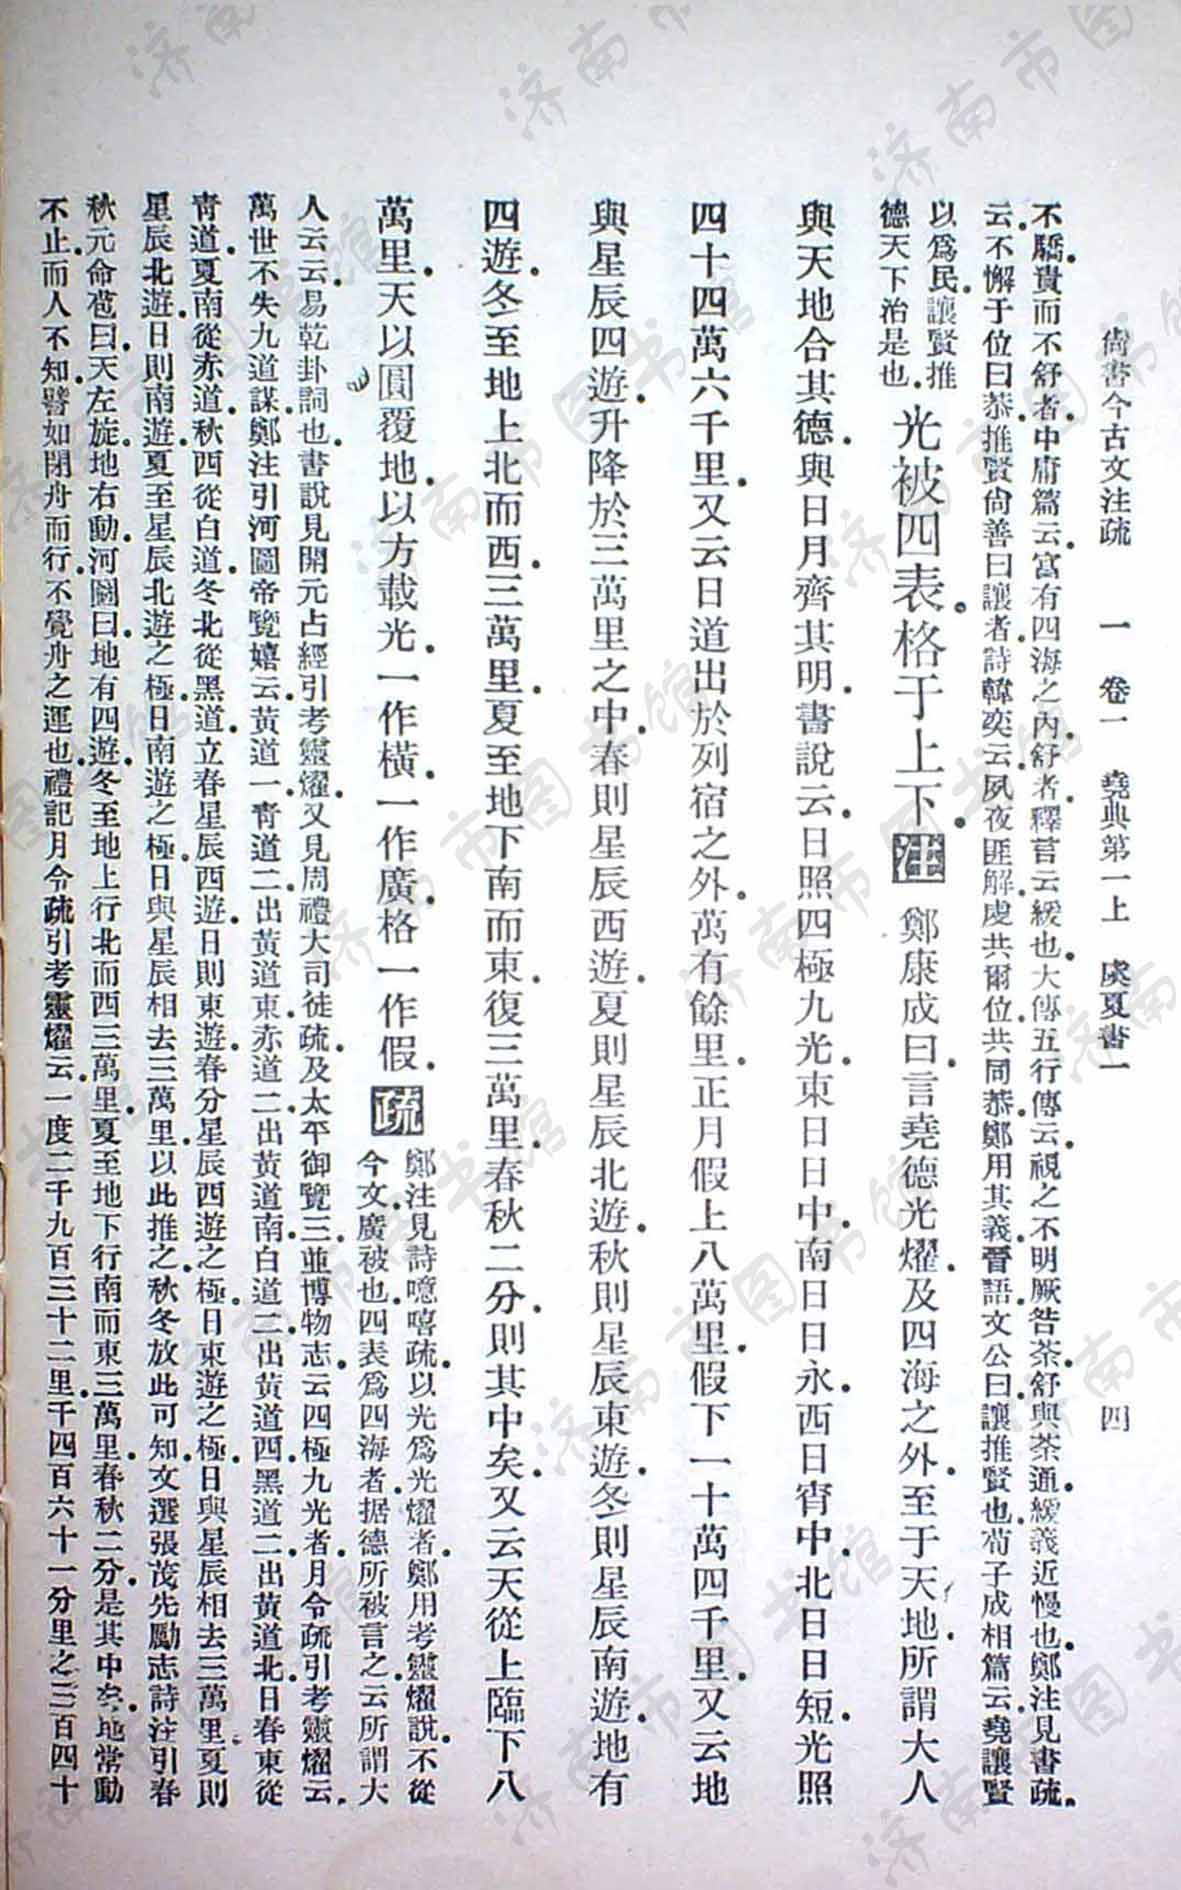 尙書今古文注疏 一 卷一 堯典第一上 虞夏書一 四
不驕貴而不舒者中庸篇云富有四海之內舒者釋言云緩也大傳五行傳云視之不明厥咎荼舒與荼通緩義近慢也鄭注見書疏
云不懈于位曰恭推賢尙善曰讓者詩韓奕云夙夜匪解虔共爾位共同恭鄭用其義晉語文公曰讓推賢也荀子成相篇云堯讓賢
以爲民讓賢推
德天下治是也
光被四表格于上下注鄭康成曰言堯德光燿及四海之外至于天地所謂大人
與天地合其德與日月齊其明書說云日照四極九光東日日中南日日永西日宵中北日日短光照
四十四萬六千里又云日道出於列宿之外萬有餘里正月假上八萬里假下一十萬四千里又云地
與星辰四遊升降於三萬里之中春則星辰西遊夏則星辰北遊秋則星辰東遊冬則星辰南遊地有
四遊冬至地上北而西三萬里夏至地下南而東復三萬里春秋二分則其中矣又云天從上臨下八
萬里天以圓覆地以方載光一作橫一作廣格一作假疏
鄭注見詩噫嘻疏以光爲光燿者鄭用考靈燿說不從
今文廣被也四表爲四海者据德所被言之云所謂大
人云云易乾卦詞也書說見開元占經引考靈燿又見周禮大司徒疏及太平御覽三並博物志云四極九光者月令疏引考靈燿云
萬世不失九道謀鄭注引河圖帝覽嬉云黃道一靑道二出黃道東赤道二出黃道南白道二出黃道西黑道二出黃道北日春東從
靑道夏南從赤道秋西從白道冬北從黑道立春星辰西遊日則東遊春分星辰西遊之極日東遊之極日與星辰相去三萬里夏則
星辰北遊日則南遊夏至星辰北遊之極日南遊之極日與星辰相去三萬里以此推之秋冬放此可知文選張茂先勵志詩注引春
秋元命苞曰天左旋地右動河圖曰地有四遊冬至地上行北而西三萬里夏至地下行南而東三萬里春秋二分是其中矣地常動
不止而人不知譬如閉舟而行不覺舟之運也禮記月令疏引考靈燿云一度二千九百三十二里千四百六十一分里之三百四十